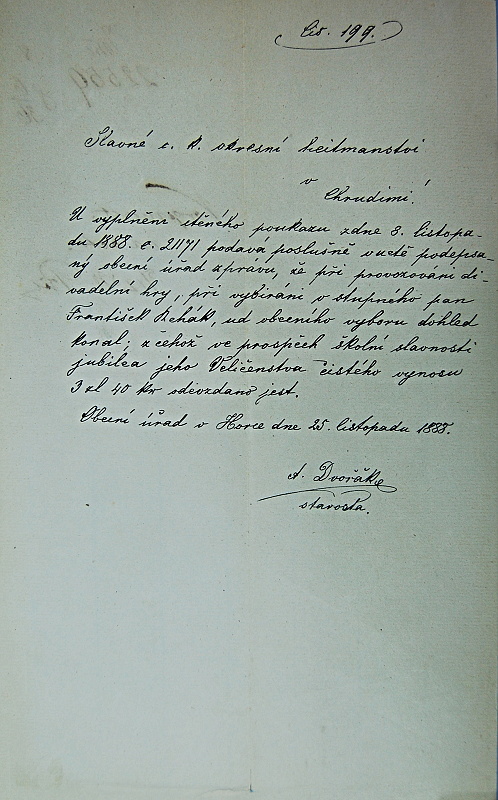 čís. 199.
Slavné c. k. okresní hejtmanství
v
Chrudimi!
U vyplnění ctěného poukazu zdne 8. listopa-
du 1888. č. 21171 podává poslušně v uctě podepsa-
ný obecní úřad zprávu, že při provozování di-
vadelní hry, při vybírání v stupného pan
František Řehák, ud obecního výboru dohled
konal; z čehož ve prospěch školní slavnosti
jubilea jeho Veličenstva čistého vynosu
3 zl 40 kr odevzdáno jest.
Obecní úřad v Horce dne 25. listopadu 1888.
A. Dvořák
starosta.